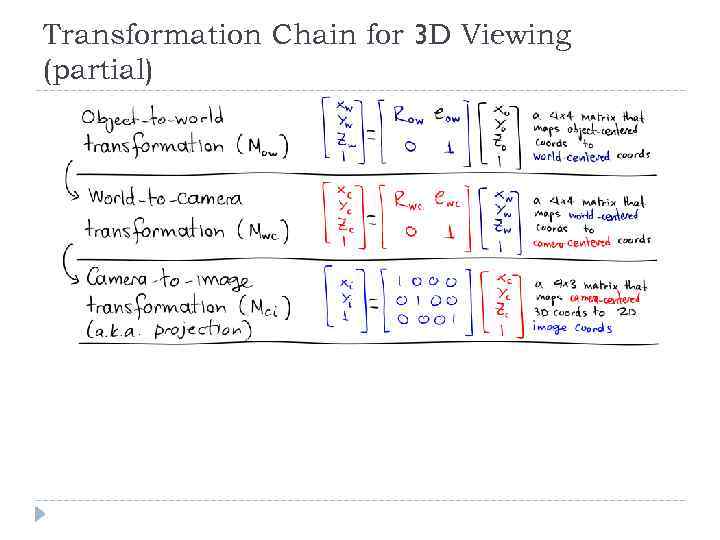 Transformation Chain for 3D Viewing
(partial)
Object-to-world
transformation (Mow)
[xw yw zw 1] = [Row eow 0 1] [xo yo zo 1]
a 4x4 matrix that
maps object-centered
coords to
world-centered coords
World-to-camera
transformation (Mwc)
[xc yc zc 1] = [Rwc ewc 0 1] [xw yw zw 1]
a 4x4 matrix that
maps world-centered
coords to
camera-centered coords
Camera-to-image
transformation (Mci)
(a.k.a. projection)
[xi yi 1] = [1 0 0 0 0 1 0 0 0 0 0 1] [xc yc zc 1]
a 4x3 matrix that
maps camera-centered
3D coords to 2D
image coords